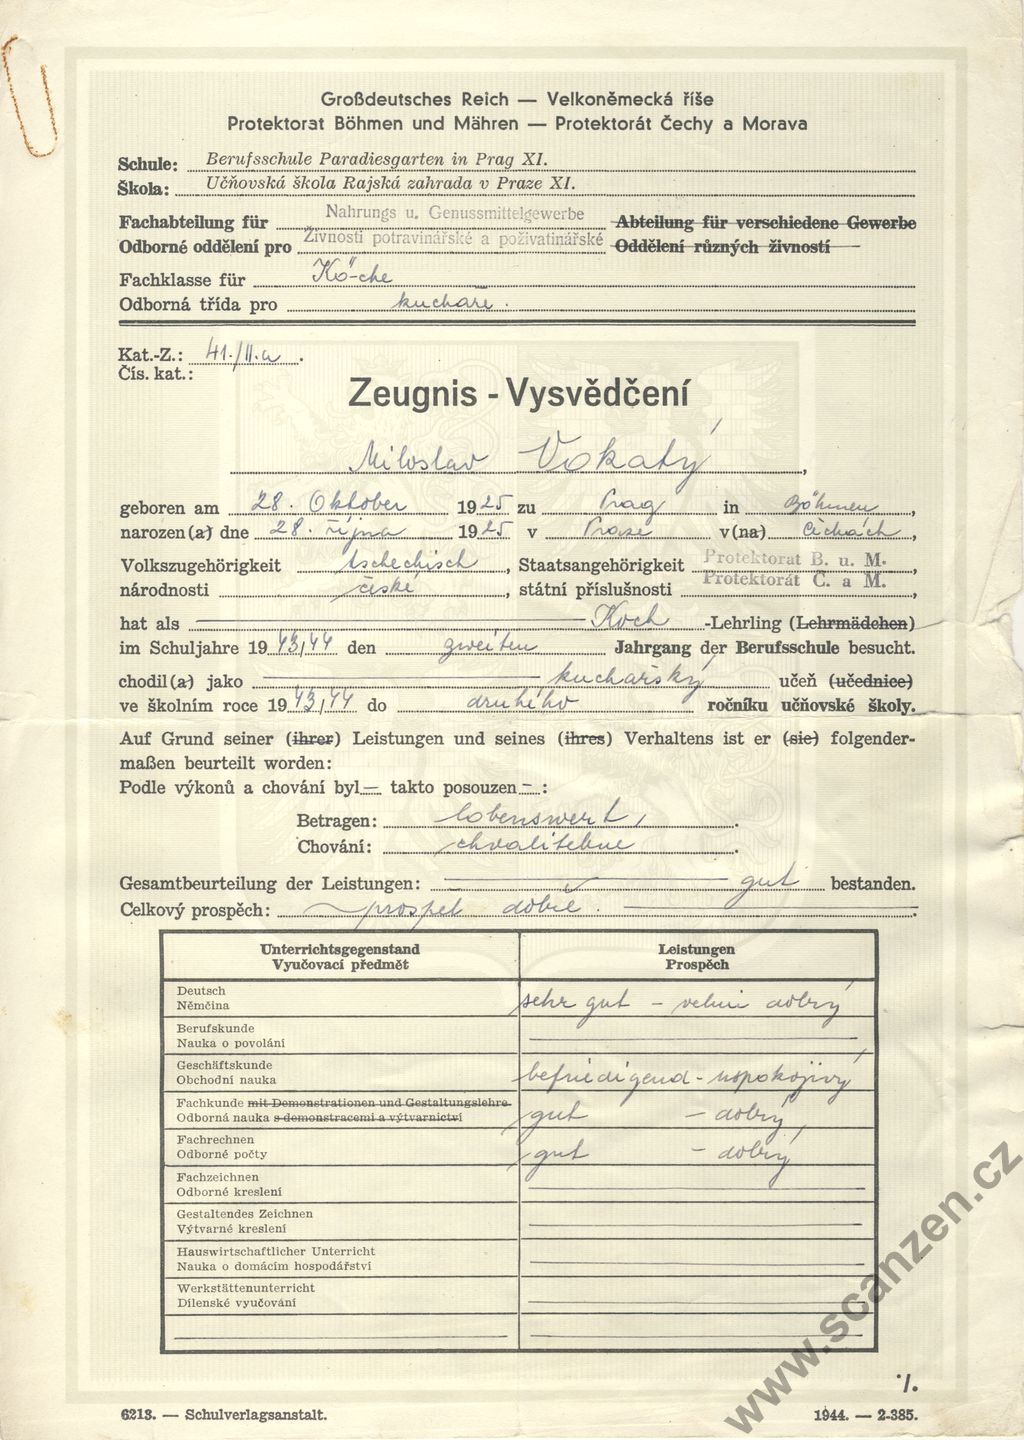 Großdeutsches Reich — Velkoněmecká říše
Protektorat Böhmen und Mähren — Protektorát Čechy a Morava
Schule: Berufsschule Paradiesgarten in Prag XI.
Škola: Učňovská škola Rajská zahrada v Praze XI.
Fachabteilung für Nahrungs u. Genussmittelgewerbe Abteilung für verschiedene Gewerbe
Odborné oddělení pro Živnosti potravinářské a poživatinářské Oddělení různých živností
Fachklasse für Kö-che
Odborná třída pro kuchaře.
Kat.-Z.: 41./II.a.
Čís. kat.:
Zeugnis - Vysvědčení
Miloslav Vokatý,
geboren am 28. Oktober 1925 zu Prag in Böhmen,
narozen(a) dne 28. října 1925 v Praze v(na) Čechách,
Volkszugehörigkeit tschechisch, Staatsangehörigkeit Protektorat B. u. M.
národnosti české, státní příslušnosti Protektorát Č. a M.,
hat als Koch-Lehrling (Lehrmädchen)
im Schuljahre 1943/44 den zweiten Jahrgang der Berufsschule besucht.
chodil(a) jako kuchařský učeň (učednice)
ve školním roce 1943/44 do druhého ročníku učňovské školy.
Auf Grund seiner (ihrer) Leistungen und seines (ihres) Verhaltens ist er (sie) folgender-
maßen beurteilt worden:
Podle výkonů a chování byl— takto posouzen—:
Betragen: lobenswert,
Chování: chvalitebné.
Gesamtbeurteilung der Leistungen: gut bestanden.
Celkový prospěch: prospěl dobře.
Unterrichtsgegenstand Leistungen
Vyučovací předmět Prospěch
Deutsch
Němčina sehr gut – velmi dobrý
Berufskunde
Nauka o povolání
Geschäftskunde
Obchodní nauka befriedigend - uspokojivý
Fachkunde mit Demonstrationen und Gestaltungslehre
Odborná nauka s demonstracemi a výtvarnictví gut – dobrý
Fachrechnen
Odborné počty gut – dobrý
Fachzeichnen
Odborné kreslení
Gestaltendes Zeichnen
Výtvarné kreslení
Hauswirtschaftlicher Unterricht
Nauka o domácím hospodářství
Werkstättenunterricht
Dílenské vyučování
·/.
6213. — Schulverlagsanstalt. 1944. — 2-385.
www.scanzen.cz